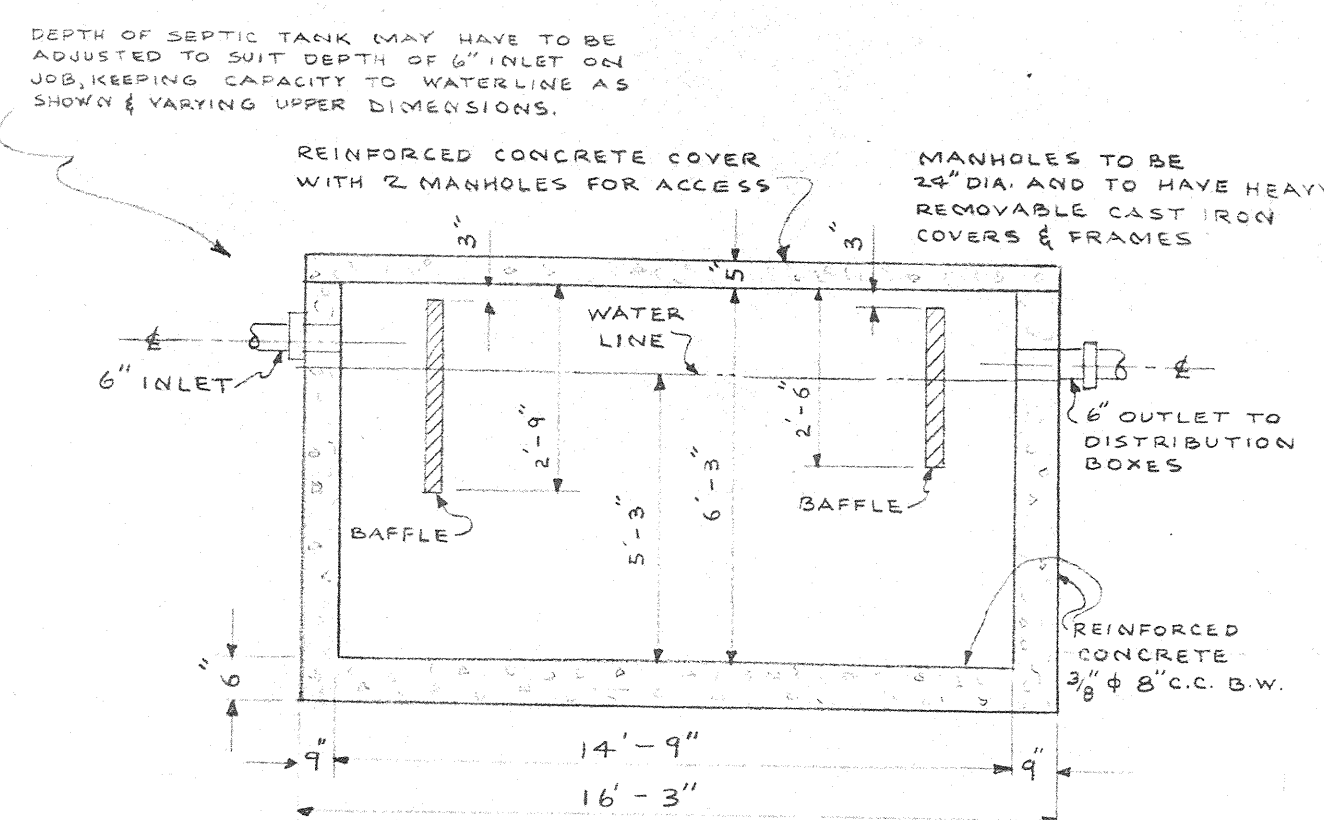 DEPTH OF SEPTIC TANK MAY HAVE TO BE
ADJUSTED TO SUIT DEPTH OF 6" INLET ON
JOB, KEEPING CAPACITY TO WATERLINE AS
SHOWN & VARYING UPPER DIMENSIONS.
REINFORCED CONCRETE COVER
WITH 2 MANHOLES FOR ACCESS
MANHOLES TO BE
24" DIA. AND TO HAVE HEAVY
REMOVABLE CAST IRON
COVERS & FRAMES
3"
5"
3"
WATER
LINE
℄
6" INLET
℄
6" OUTLET TO
DISTRIBUTION
BOXES
2'-9"
2'-6"
5'-3"
6'-3"
BAFFLE
BAFFLE
REINFORCED
CONCRETE
3/8" ϕ 8" C.C. B.W.
6"
9"
14'-9"
9"
16'-3"